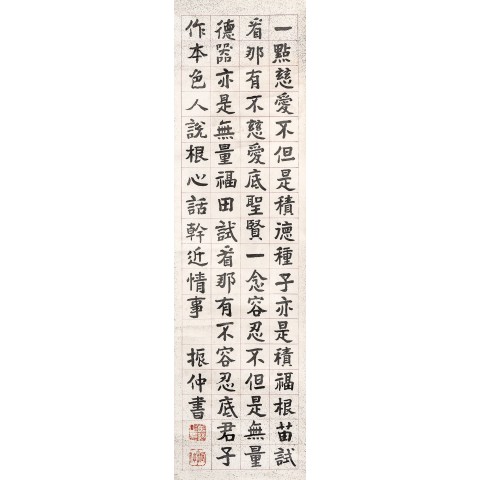 一點慈愛不但是積德種子亦是積福根苗試
看那有不慈愛底聖賢一念容忍不但是無量
德器亦是無量福田試看那有不容忍底君子
作本色人說根心話幹近情事 振仲書